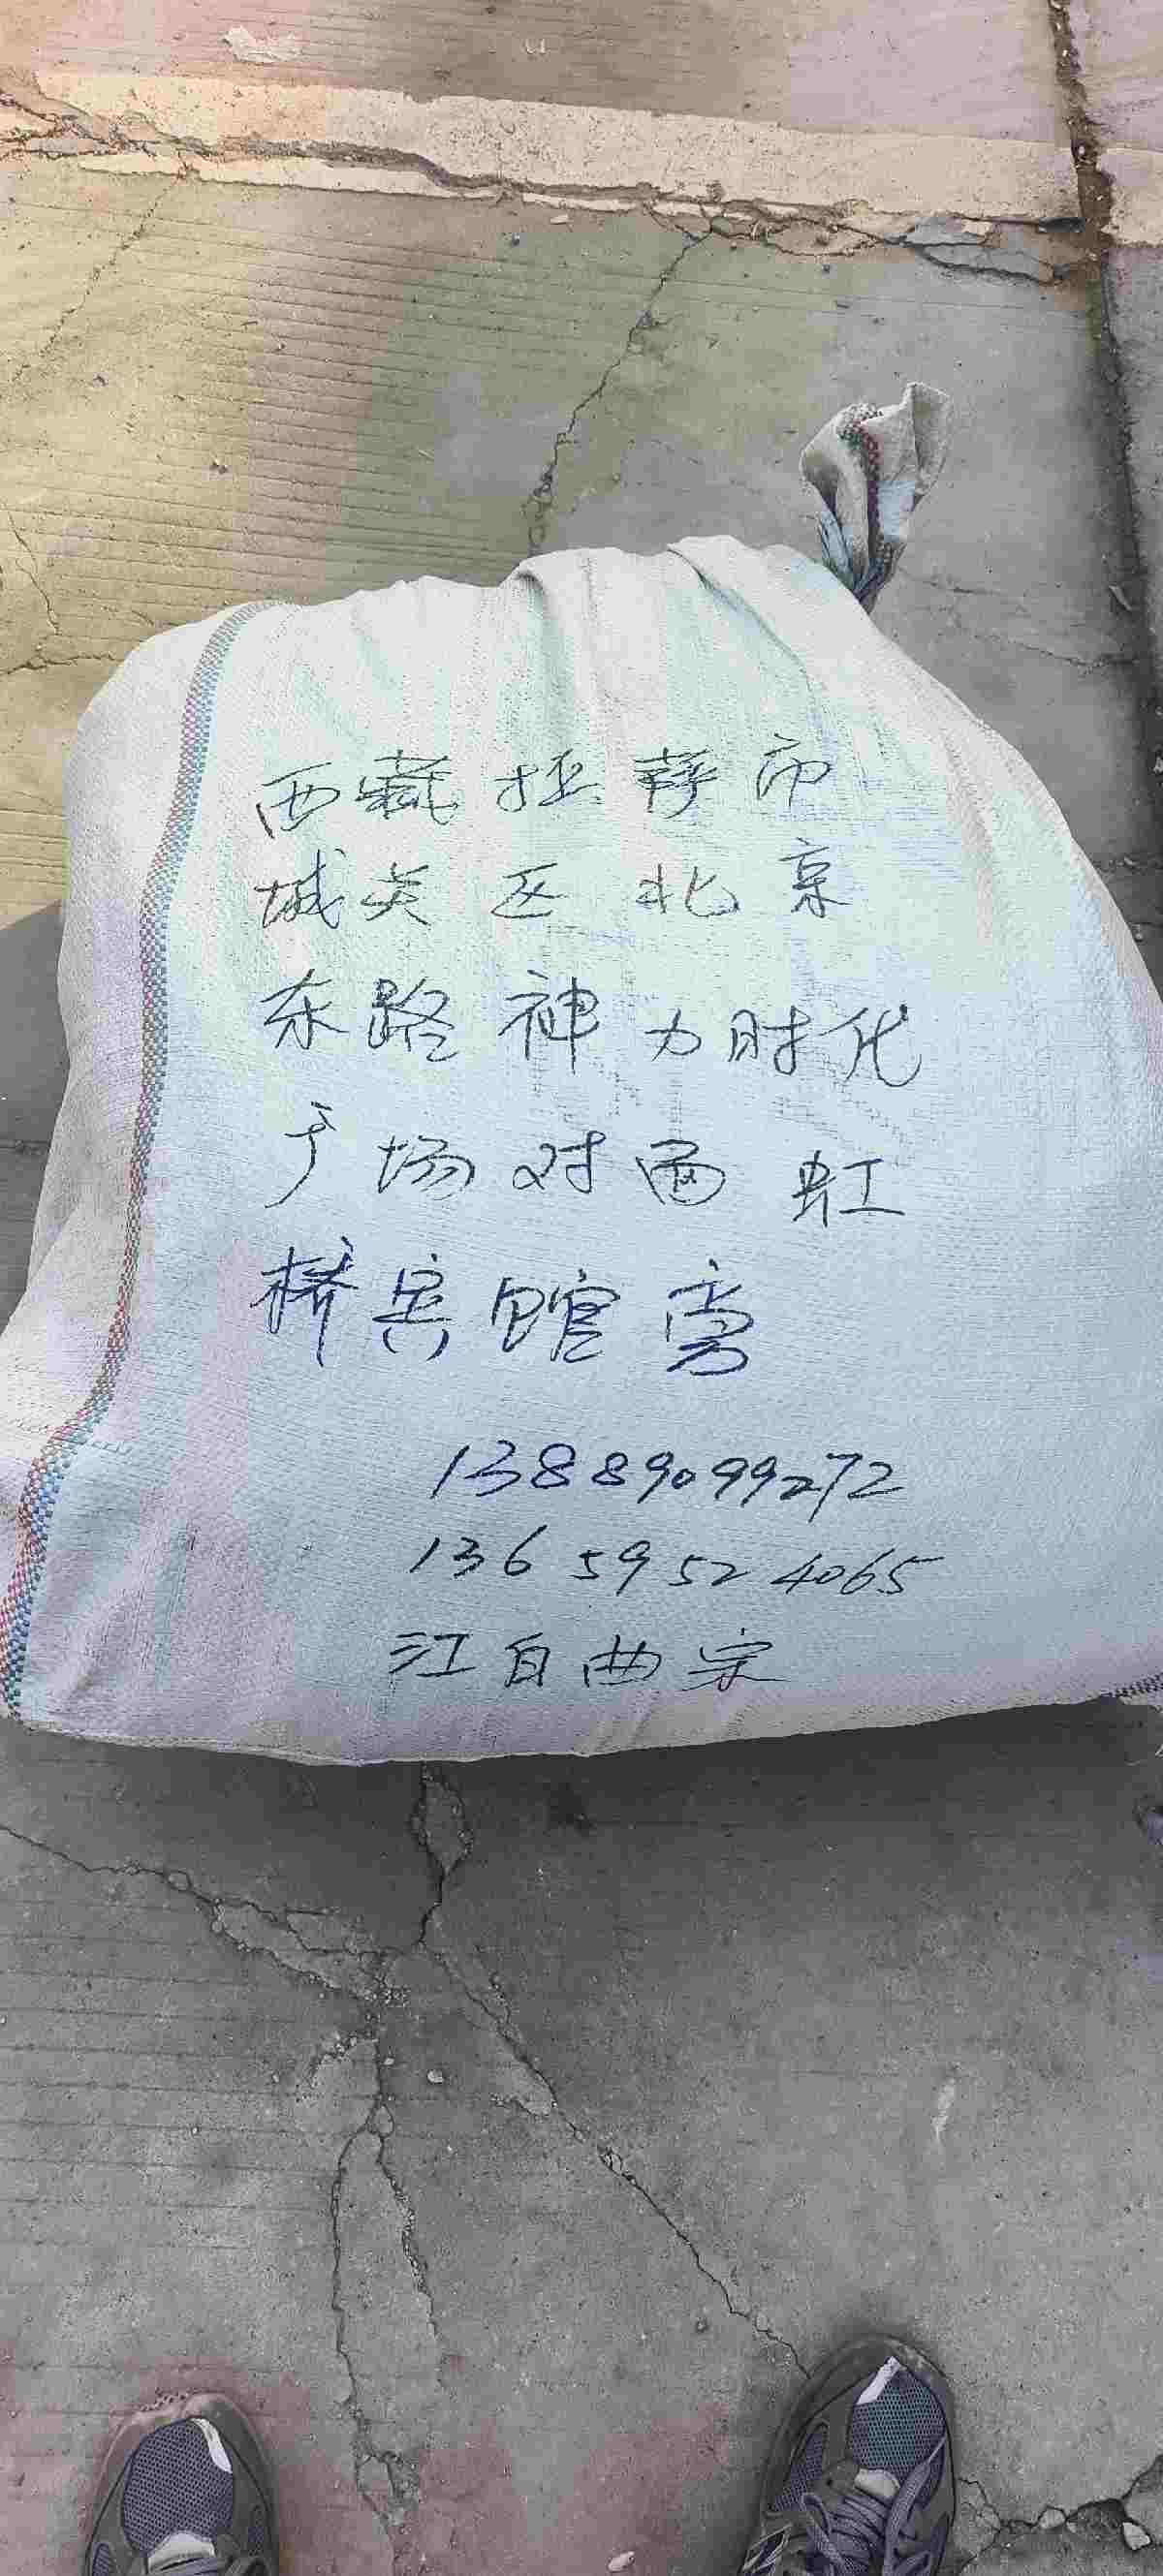 西藏拉萨市
城关区北京
东路神力时代
广场对面虹
桥宾馆旁
13889099272
13659524065
江白曲宗